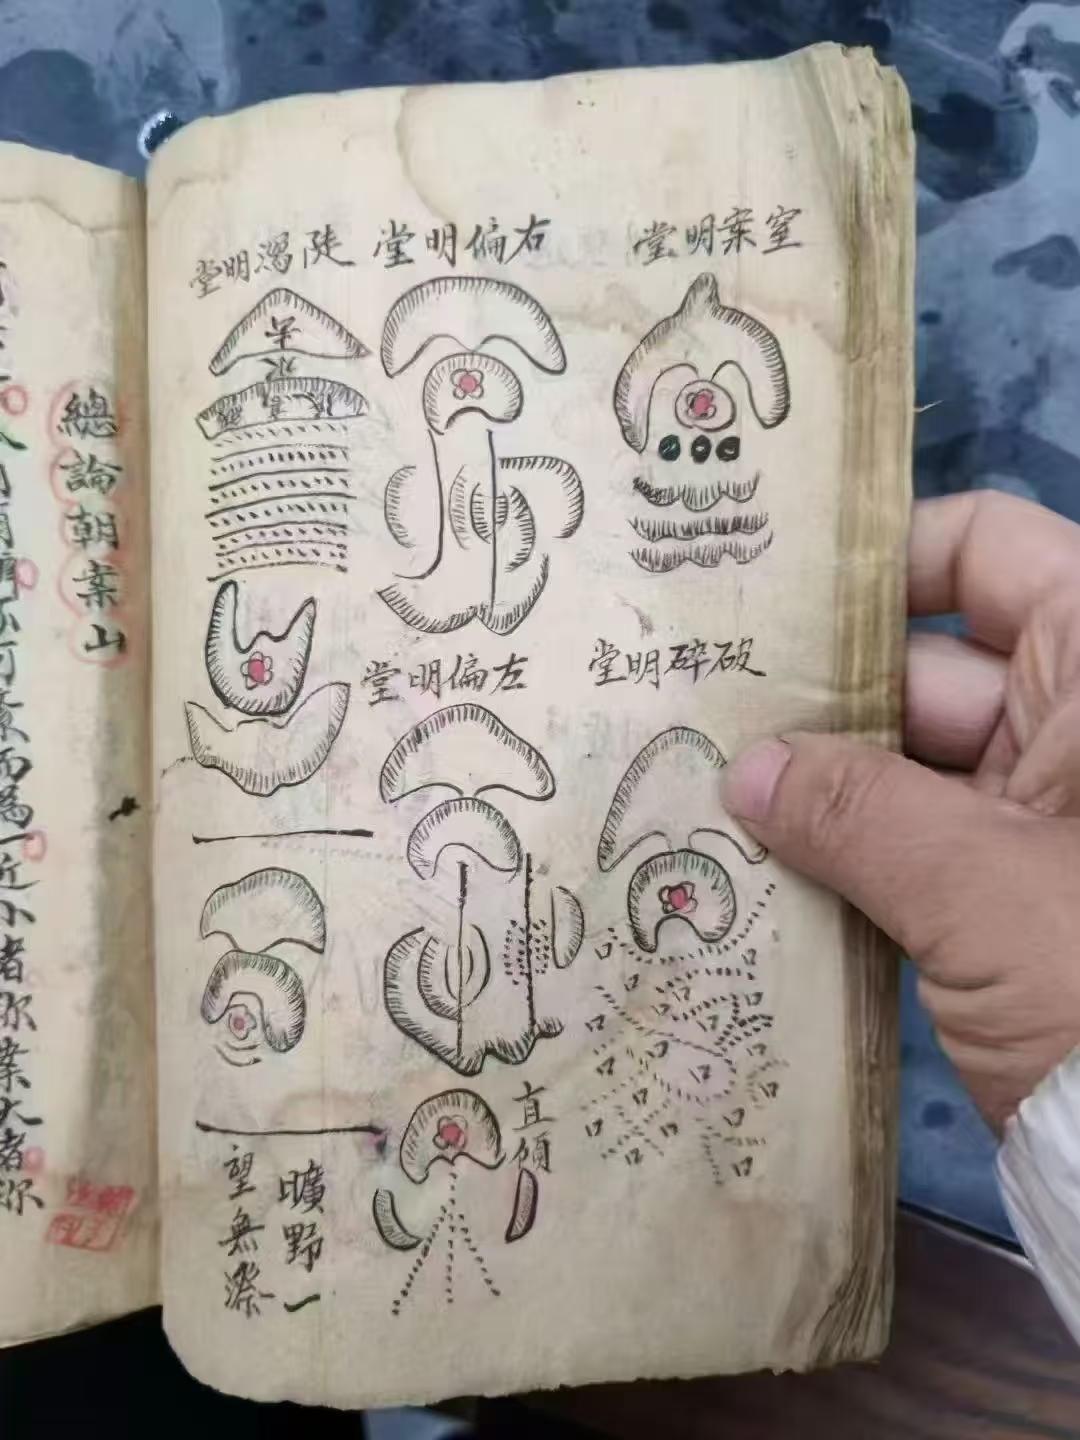 窒案明堂
右偏明堂
陡瀉明堂
破碎明堂
左偏明堂
直傾
曠野一
望無際
總論朝案山
近小者称案大者称